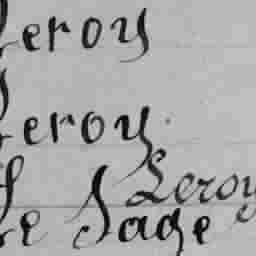 Leroy
Leroy.
Leroy
Le Sage